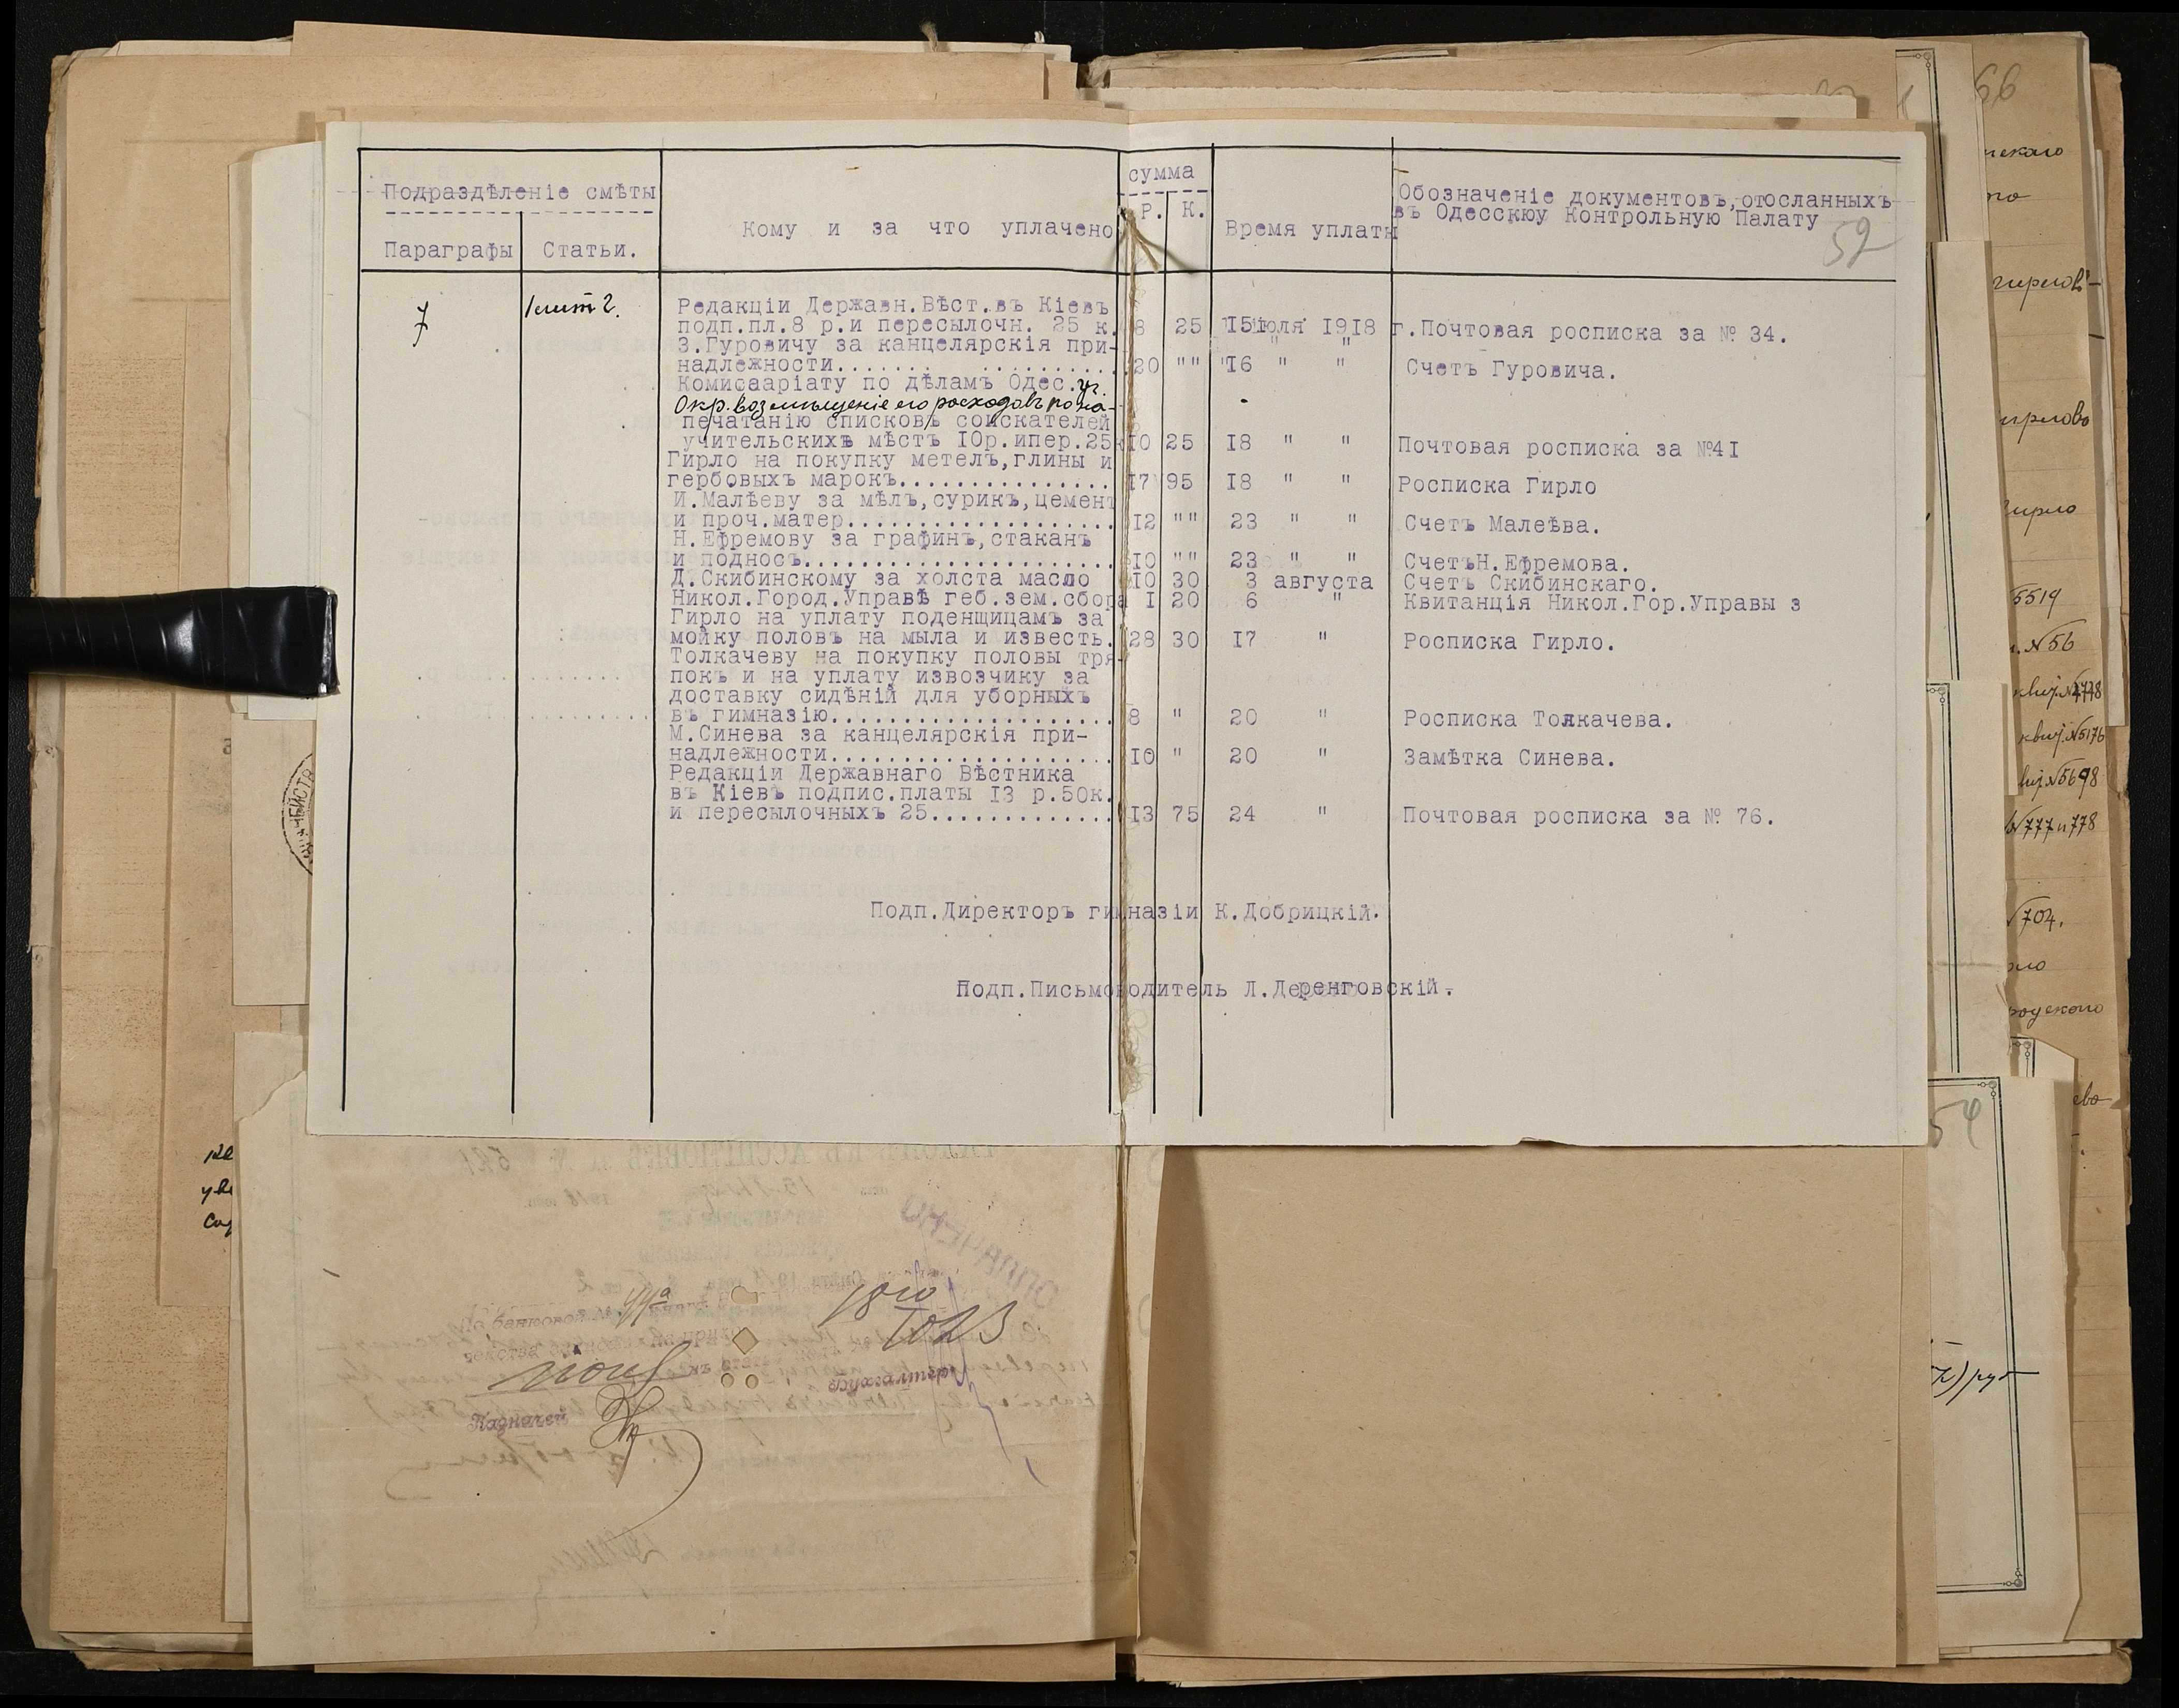 Подраздѣленіе смѣты
Параграфы
Статьи.
Кому и за что уплачено
сумма
Р. К.
Время уплаты
Обозначеніе документовъ,отосланныхъ
въ Одесскюу Контрольную Палату
52
7
Редакціи Державн.Вѣст.въ Кіевъ
подп.пл.8 р.и пересылочн. 25 к. 8 25 15 іюля 1918 г.Почтовая росписка за № 34.
З.Гуровичу за канцелярскія при- " "
надлежности.................... 20 "" 16 " " Счетъ Гуровича.
Комисааріату по дѣламъ Одес.уч.
Окр. возмѣщеніе его расходовъ по на-
печатанію списковъ соискателей
учительскихъ мѣстъ I0р.ипер.25к I0 25 I8 " " Почтовая росписка за №4I
Гирло на покупку метелъ,глины и
гербовыхъ марокъ................ I7 95 I8 " " Росписка Гирло
И.Малѣеву за мѣлъ,сурик,цемент
и проч.матер.................... I2 "" 23 " " Счетъ Малеѣва.
Н.Ефремову за графинъ,стаканъ
и подносъ....................... I0 "" 23 " " СчетъН.Ефремова.
Д.Скибинскому за холста масло I0 30 3 августа Счетъ Скибинскаго.
Никол.Город.Управѣ геб.зем.сбора I 20 6 " Квитанція Никол.Гор.Управы з
Гирло на уплату поденщицамъ за
мойку половъ на мыла и известь. 28 30 I7 " Росписка Гирло.
Толкачеву на покупку половы тря-
покъ и на уплату извозчику за
доставку сидѣній для уборныхъ
въ гимназію...................... 8 " 20 " Росписка Толкачева.
М.Синева за канцелярскія при-
надлежности...................... I0 " 20 " Замѣтка Синева.
Редакціи Державнаго Вѣстника
въ Кіевъ подпис.платы I3 р.50к.
и пересылочныхъ 25............. I3 75 24 " Почтовая росписка за № 76.
Подп.Директоръ гимназіи К.Добрицкій.
Подп.Письмоводитель Л.Деренговскій.
Казначей
Бухгалтеръ
66
5519
№ 56
№ 5176
№ 5698
№ 777 и 778
704.
54